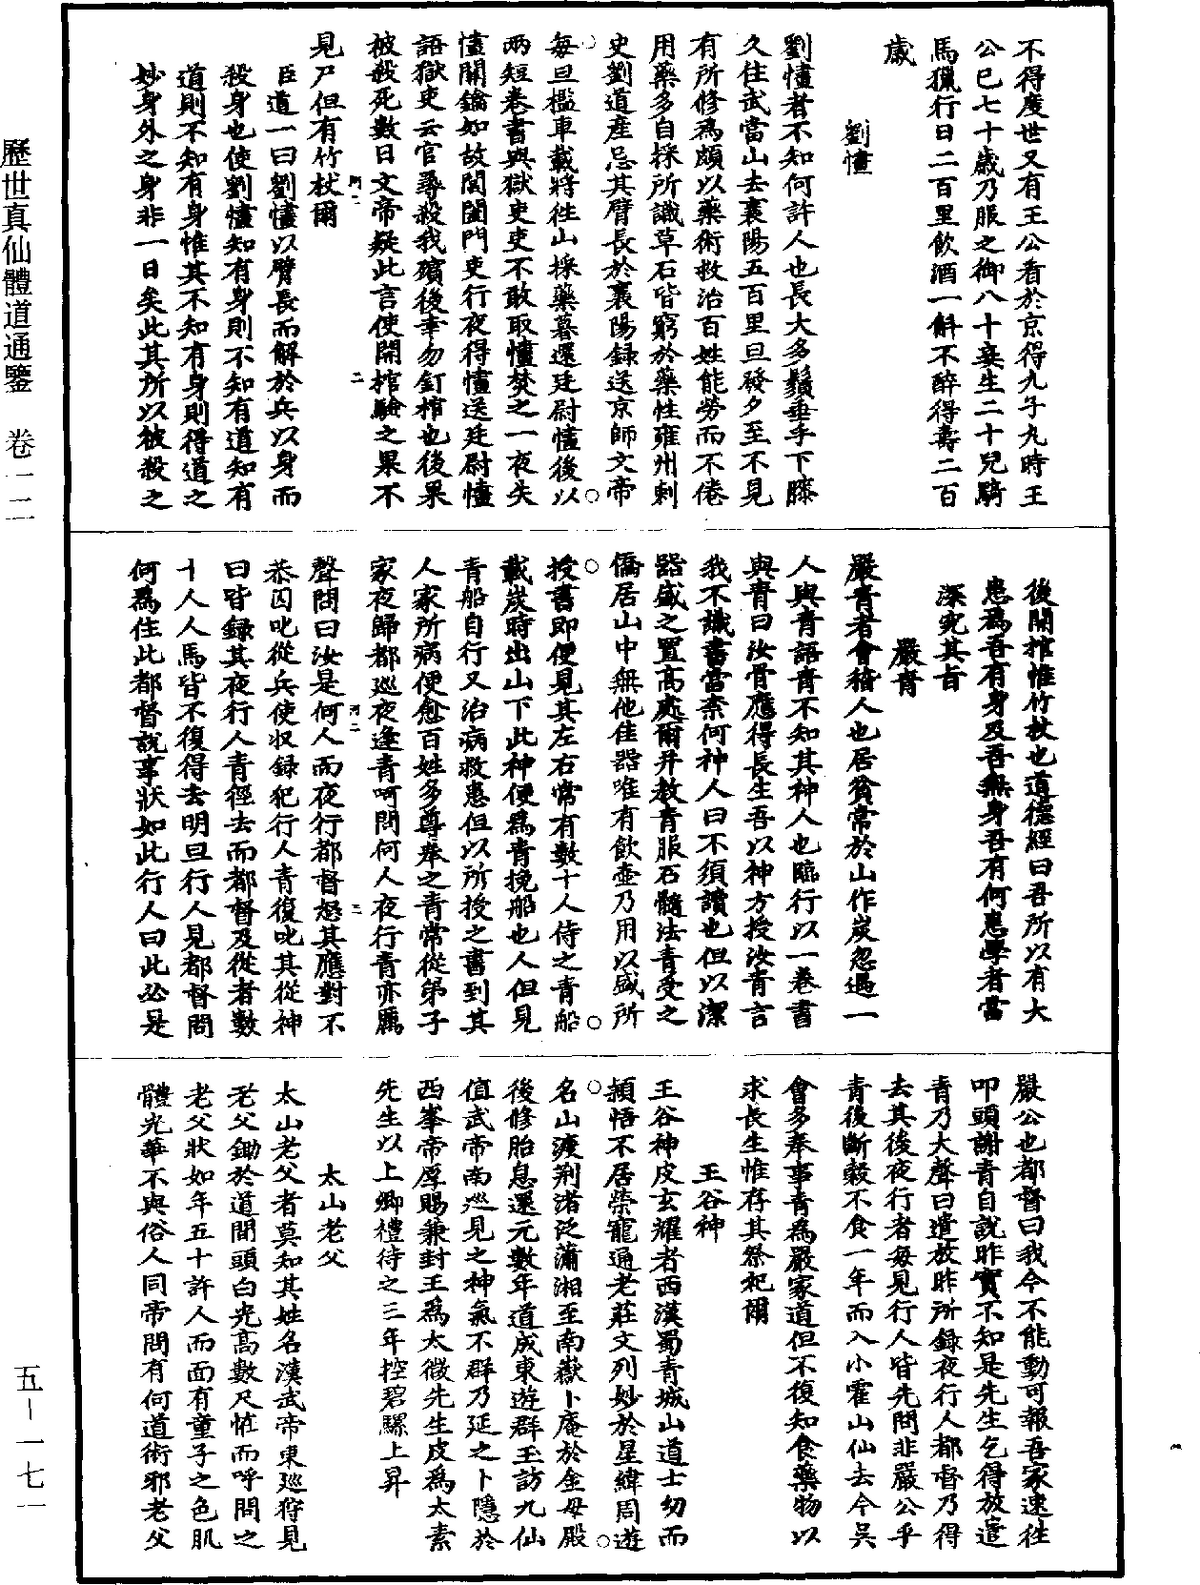 歷世真仙體道通鑒　卷一二
五－一七一
不得度世又有王公看於京得九子丸時王
公已七十歲乃服之御八十妾生二十兒騎
馬獵行日二百里飲酒一斛不醉得壽二百
歲
劉憻
劉憻者不知何許人也長大多鬚垂手下膝
久住武當山去襄陽五百里旦發夕至不見
有所修為頗以藥術救治百姓能勞而不倦
用藥多自採所識草石皆窮於藥性雍州刺
史劉道產忌其臂長於襄陽録送京師文帝
每旦檻車載將往山採藥暮還廷尉憻後以
兩短卷書與獄吏吏不敢取憻焚之一夜失
憻關鑰如故閶闔門吏行夜得憻送廷尉憻
語獄吏云官尋殺我殯後幸勿釘棺也後果
被殺死數日文帝疑此言使開棺驗之果不
見尸但有竹杖爾
臣道一曰劉憻以臂長而解於兵以身而
殺身也使劉憻知有身則不知有道知有
道則不知有身惟其不知有身則得道之
妙身外之身非一日矣此其所以被殺之
後開棺惟竹杖也道德經曰吾所以有大
患為吾有身及吾無身吾有何患學者當
深究其旨
嚴青
嚴青者會稽人也居貧常於山作炭忽遇一
人與青語青不知其神人也臨行以一卷書
與青曰汝骨應得長生吾以神方授汝青言
我不識書當柰何神人曰不須讀也但以潔
器盛之置高處爾并教青服石髓法青受之
僑居山中無他佳器唯有飲壺乃用以盛所
授書即便見其左右常有數十人侍之青船
載炭時出山下此神便為青挽船也人但見
青船自行又治病救患但以所授之書到其
人家所病便愈百姓多尊奉之青常從弟子
家夜歸都巡夜逢青呵問何人夜行青亦厲
聲問曰汝是何人而夜行都督怒其應對不
恭因叱從兵使收録犯行人青復叱其從神
曰皆録其夜行人青徑去而都督及從者數
十人人馬皆不復得去明旦行人見都督問
何為住此都督說事狀如此行人曰此必是
嚴公也都督曰我今不能動可報吾家速往
叩頭謝青自說昨實不知是先生乞得放遣
青乃大聲曰遣放昨所録夜行人都督乃得
去其後夜行者每見行人皆先問非嚴公乎
青後斷穀不食一年而入小霍山仙去今吳
會多奉事青為嚴家道但不復知食藥物以
求長生惟存其祭祀爾
王谷神
王谷神皮玄耀者西漢蜀青城山道士幼而
穎悟不居榮寵通老莊文列妙於星緯周遊
名山渡荆渚泛瀟湘至南嶽卜庵於金母殿
後修胎息還元數年道成東遊群玉訪九仙
值武帝南巡見之神氣不群乃延之卜隱於
西峯帝厚賜兼封王為太微先生皮為太素
先生以上卿禮待之三年控碧騾上昇
太山老父
太山老父者莫知其姓名漢武帝東巡狩見
老父鋤於道間頭白光高數尺怪而呼問之
老父狀如年五十許人而面有童子之色肌
體光華不與俗人同帝問有何道術邪老父